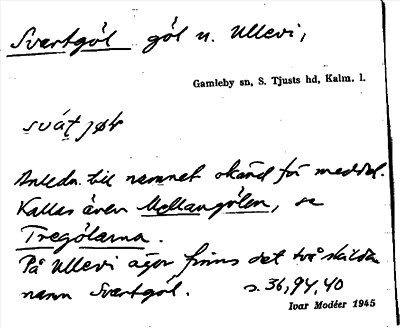 Svartgöl göl n. Ullevi,
Gamleby sn, S. Tjusts hd, Kalm. l.
Anledn. til namnet okänd för meddel.
Kallas även Mellangölen, se
Tregölarna.
På Ullevi ägor finns det två skilda
namn Svartgöl. s. 36, 94, 40
Ivar Modéer 1945